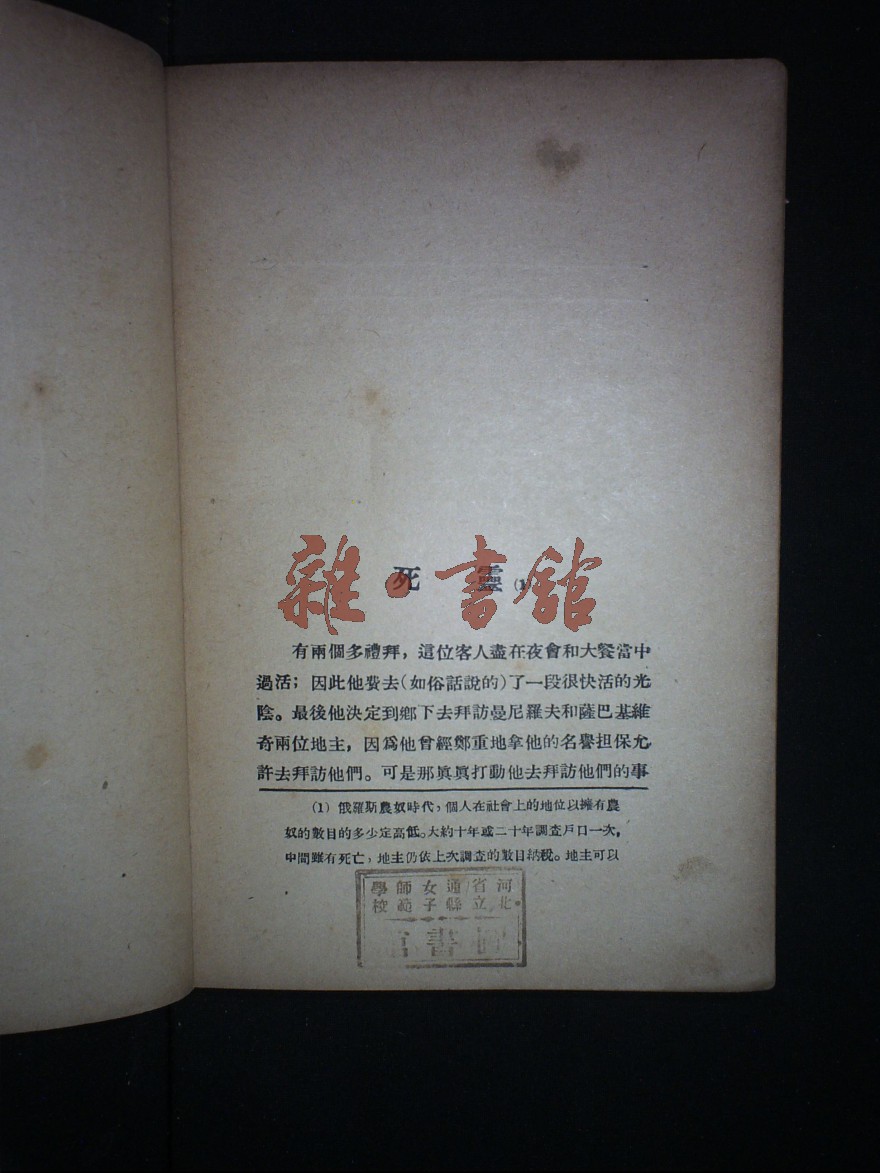 死靈(1)
雜·書館
有兩個多禮拜，這位客人盡在夜會和大餐當中
過活；因此他費去(如俗話說的)了一段很快活的光
陰。最後他決定到鄉下去拜訪曼尼羅夫和薩巴基維
奇兩位地主，因爲他曾經鄭重地拿他的名譽担保允
許去拜訪他們。可是那眞眞打動他去拜訪他們的事
(1) 俄羅斯農奴時代，個人在社會上的地位以擁有農
奴的數目的多少定高低。大約十年或二十年調查戶口一次，
中間雖有死亡，地主仍依上次調查的數目納稅。地主可以
河北省立通縣女子師範學校
書